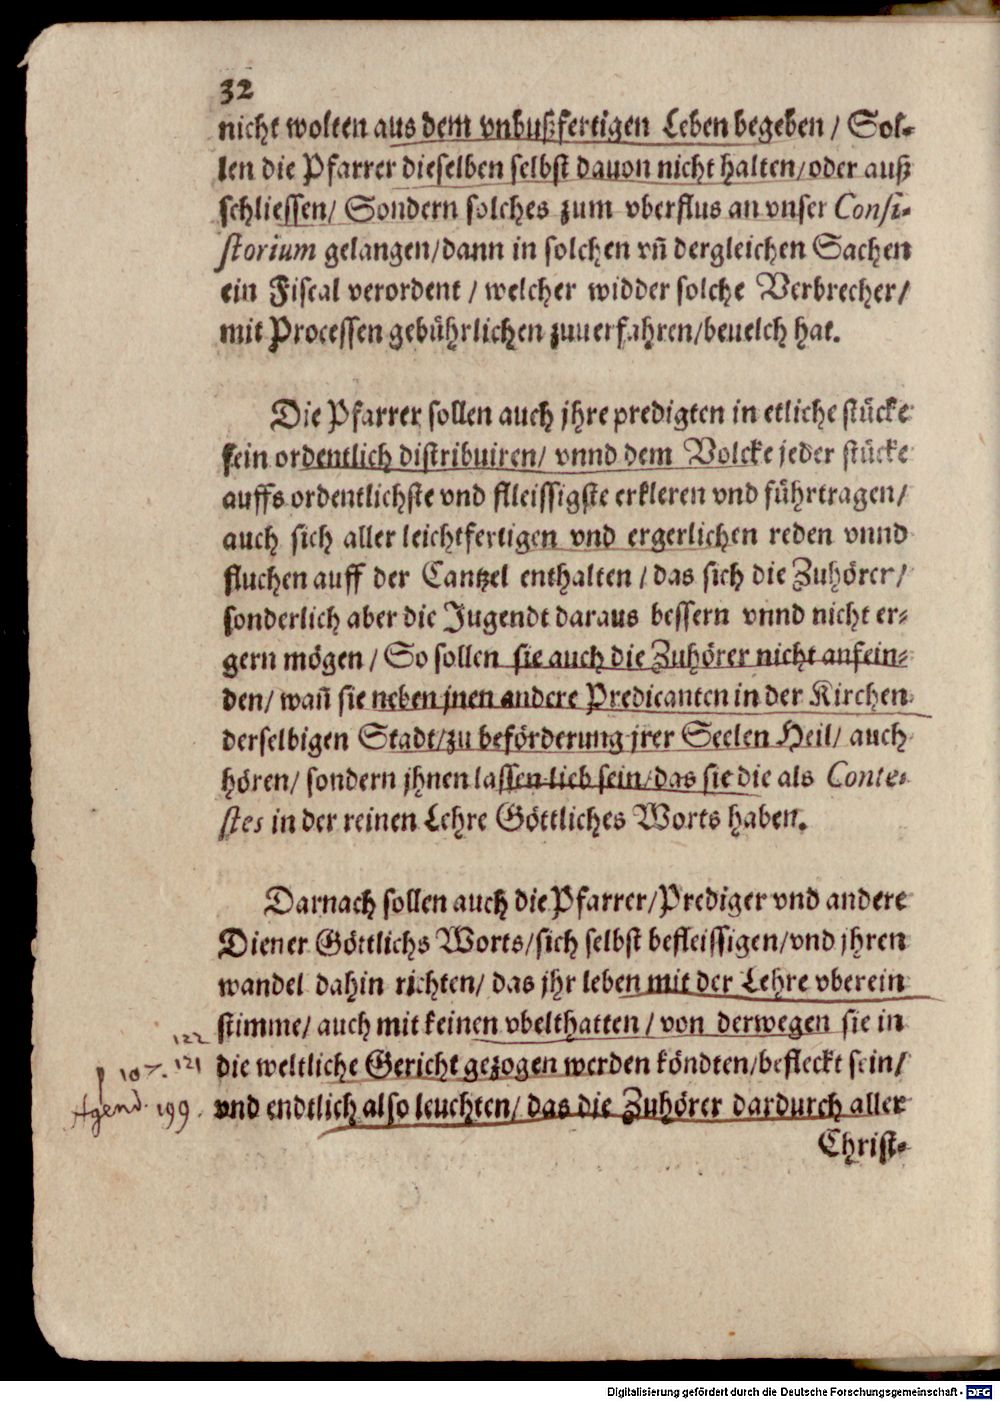 32
nicht wolten aus dem vnbußfertigen Leben begeben / Sol-
len die Pfarrer dieselben selbst dauon nicht halten/ oder auß
schliessen/ Sondern solches zum vberflus an vnser Consi-
storium gelangen/ dann in solchen vn̄ dergleichen Sachen
ein Fiscal verordent / welcher widder solche Verbrecher/
mit Processen gebührlichen zuuerfahren/ beuelch hat.
Die Pfarrer sollen auch jhre predigten in etliche stücke
fein ordentlich distribuiren/ vnnd dem Volcke jeder stücke
auffs ordentlichste vnd fleissigste erkleren vnd führtragen/
auch sich aller leichtfertigen vnd ergerlichen reden vnnd
fluchen auff der Cantzel enthalten / das sich die Zuhörer/
sonderlich aber die Jugendt daraus bessern vnnd nicht er-
gern mögen / So sollen sie auch die Zuhörer nicht anfein-
den/ wan̄ sie neben jnen andere Predicanten in der Kirchen
derselbigen Stadt/ zu beförderung jrer Seelen Heil/ auch
hören/ sondern jhnen lassen lieb sein/ das sie die als Conte-
stes in der reinen Lehre Göttliches Worts haben.
Darnach sollen auch die Pfarrer/ Prediger vnd andere
Diener Göttlichs Worts/ sich selbst befleissigen/ vnd jhren
wandel dahin richten/ das jhr leben mit der Lehre vberein
stimme/ auch mit keinen vbelthatten / von derwegen sie in
die weltliche Gericht gezogen werden köndten/ befleckt sein/
vnd endtlich also leuchten/ das die Zuhörer dardurch aller
Christ-
122
107. 121
Agend. 199.
Digitalisierung gefördert durch die Deutsche Forschungsgemeinschaft - DFG